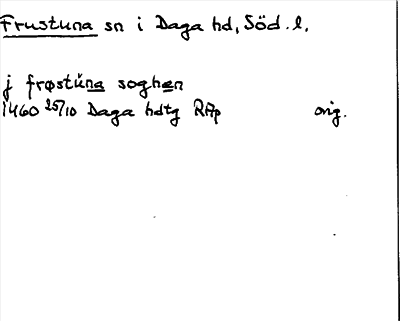 Frustuna sn i Daga hd, Söd. l.
j frøstŭna soghen
1460 25/10 Daga hdtg RAp orig.